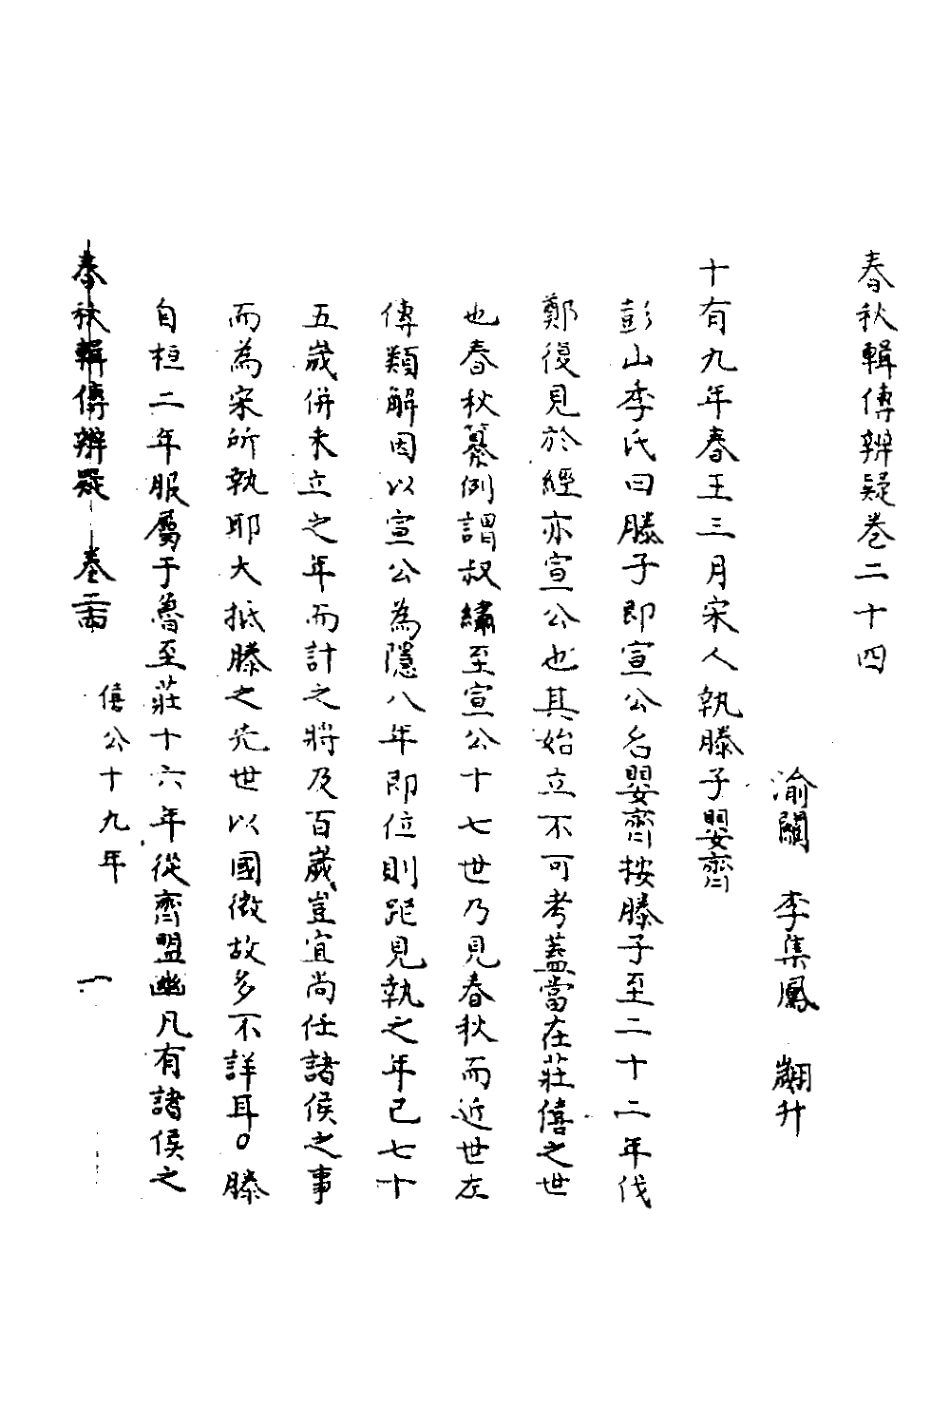 春秋輯傳辨疑卷二十四
渝關　李集鳳　翽升
十有九年春王三月宋人執滕子嬰齊
彭山季氏曰滕子即宣公名嬰齊按滕子至二十二年伐
鄭復見於經亦宣公也其始立不可考蓋當在莊僖之世
也春秋纂例謂叔繡至宣公十七世乃見春秋而近世左
傳類解因以宣公為隱八年即位則距見執之年已七十
五歲併未立之年而計之將及百歲豈宜尚任諸侯之事
而為宋所執耶大抵滕之先世以國微故多不詳耳○滕
自桓二年服屬于魯至莊十六年從齊盟幽凡有諸侯之
春秋輯傳辨疑　卷二十四　僖公十九年　一